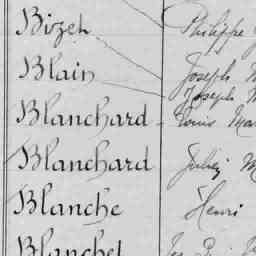 Bizeh Philippe
Blain Joseph
Joseph
Blanchard Louis Mar
Blanchard Julien M
Blanche Henri
Blanchet